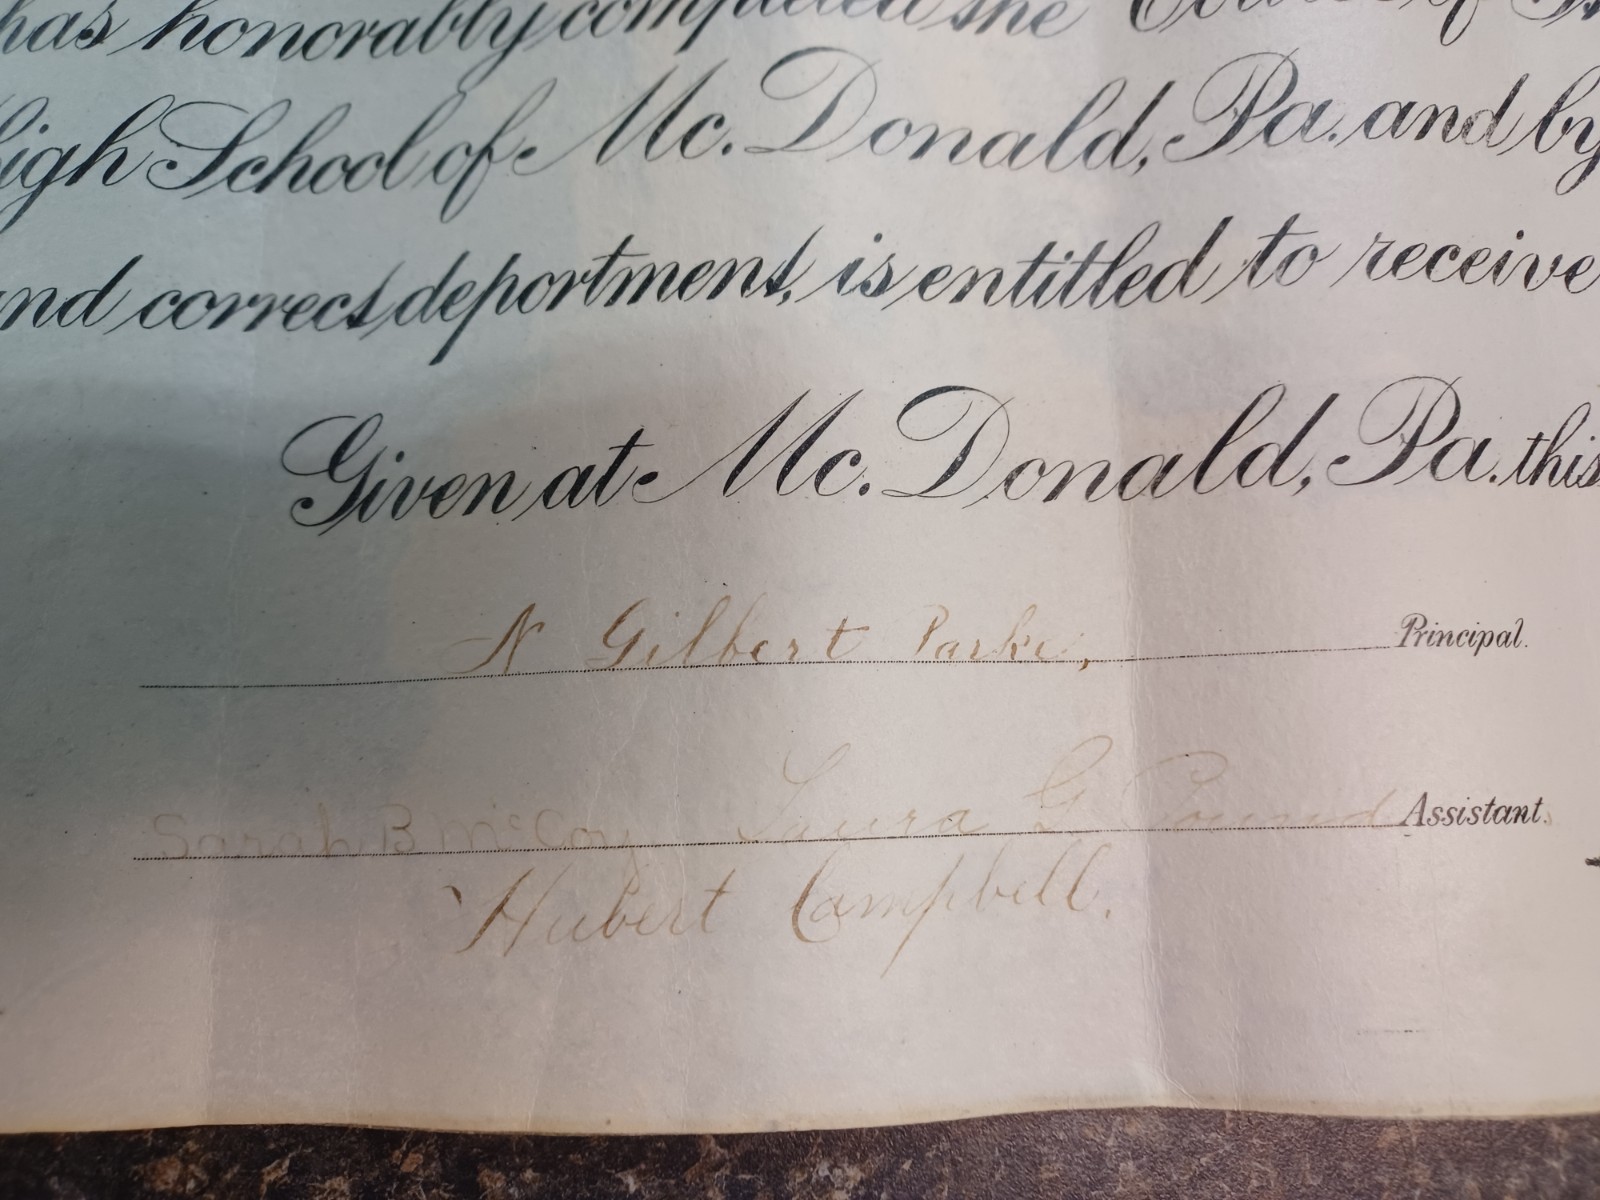 has honorably completed the Course of
High School of Mc. Donald, Pa. and by
and correct deportment, is entitled to receive
Given at Mc. Donald, Pa. this
N Gilbert Parke, Principal.
Sarah B McCoy Laura G. Pound Assistant.
Hubert Campbell.